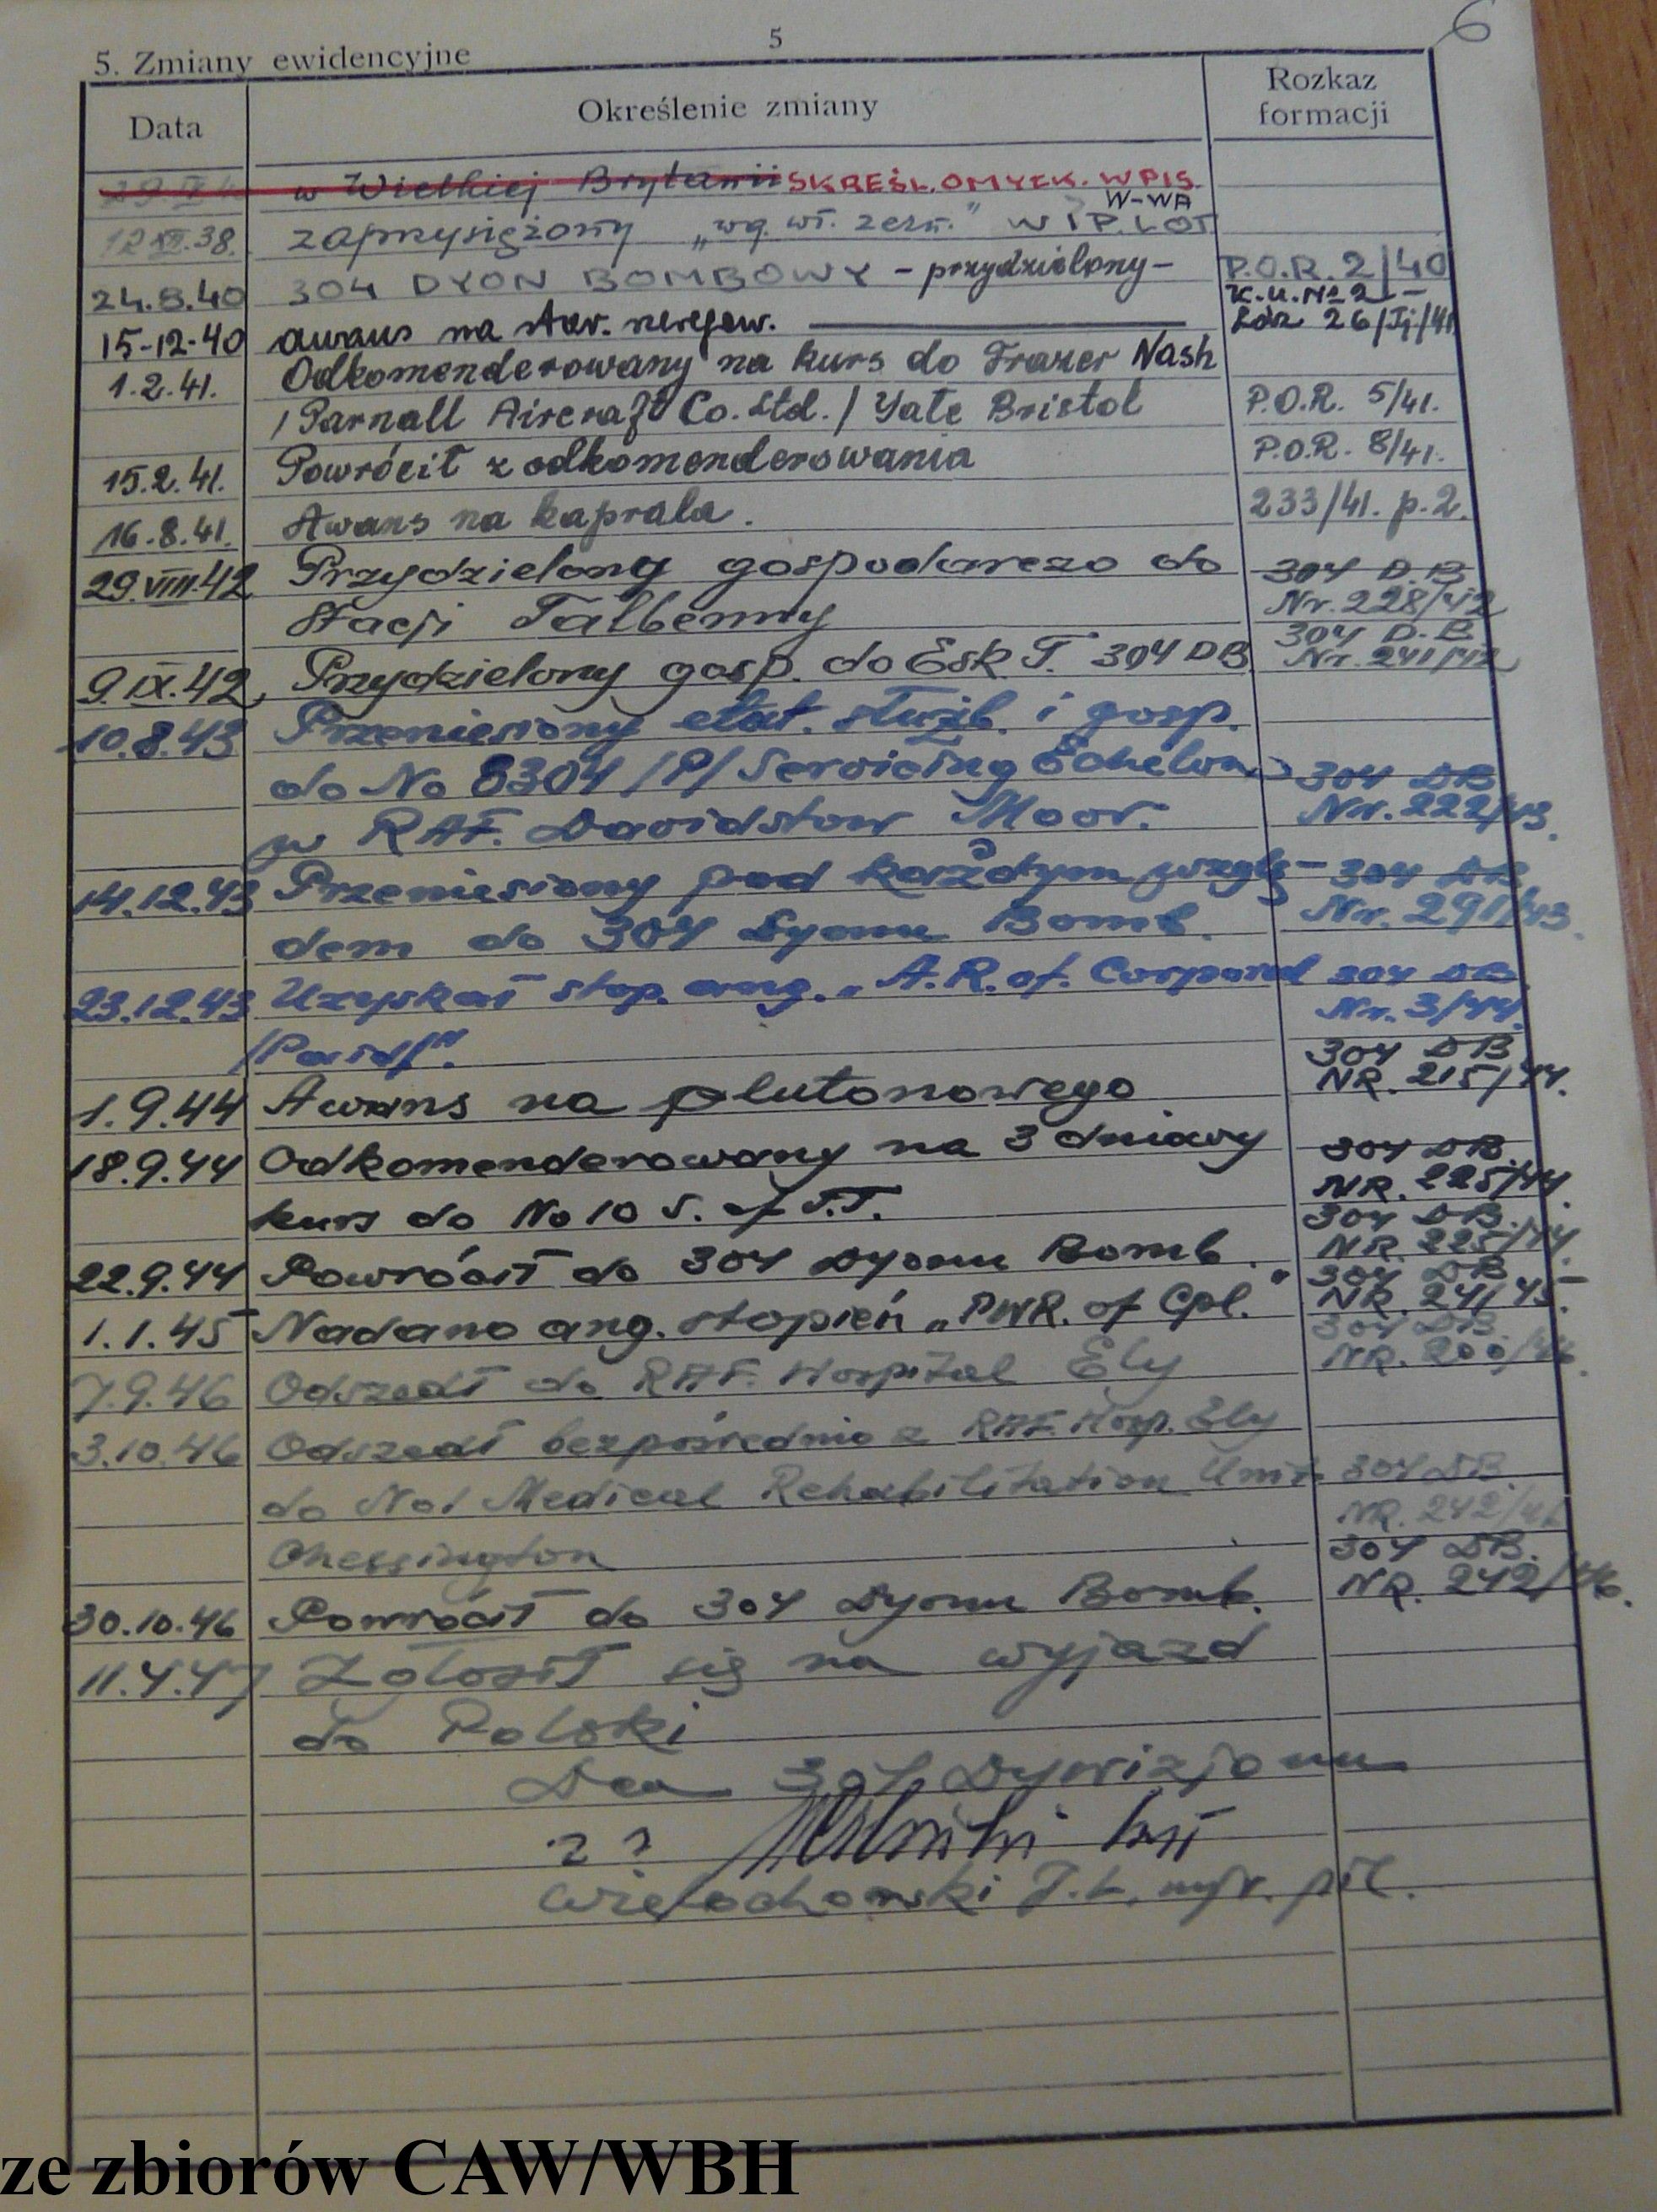 6
5
5. Zmiany ewidencyjne
Data Określenie zmiany Rozkaz formacji
w Wielkiej Brytanii SKREŚL. OMYŁK. WPIS.
W-WA
12 XII.38. zaprzysiężony „wg. wł. zezn." W 1 P. LOT
24.8.40 304 DYON BOMBOWY - przydzielony - P.O.R. 2/40
K.U. No 2 -
15-12-40 awans na st. szer. 26/II/41
1.2.41. Odkomenderowany na kurs do Frazer Nash
/Parnall Aircraft Co. Ltd./ Yate Bristol P.O.R. 5/41.
15.2.41. Powrócił z odkomenderowania P.O.R. 8/41.
16.8.41. Awans na kaprala. 233/41. p.2.
29.VIII.42 Przydzielony gospodarczo do 304 D.B.
Stacji Talbenny Nr. 228/42
9.IX.42 Przydzielony gosp. do Esk. T. 304 DB 304 D.B. Nr. 241/42
10.8.43 Przeniesiony etat. służb. i gosp.
do No 6304 /P/ Servicing Echelon 304 DB
w RAF. Davidstow Moor. Nr. 222/43.
14.12.43 Przeniesiony pod każdym wzglę- 304 DB
dem do 304 Dyonu Bomb. Nr. 291/43.
23.12.43 Uzyskał stop. ang. „A.R. of. Corporal 304 DB
/Paid/". Nr. 3/44.
1.9.44 Awans na plutonowego 304 DB NR. 215/44.
18.9.44 Odkomenderowany na 3 dniowy 304 DB.
kurs do No 10 S. of T.T. NR. 225/44.
22.9.44 Powrócił do 304 Dyonu Bomb. 304 DB. NR. 225/44.
1.1.45 Nadano ang. stopień „PWR. of Cpl." 304 DB NR. 24/45.
7.9.46 Odszedł do RAF. Hospital Ely 304 DB. NR. 200/46.
3.10.46 Odszedł bezpośrednio z RAF. Hosp. Ely
do No 1 Medical Rehabilitation Unit 304 DB.
Chessington NR. 242/46
30.10.46 Powrócił do 304 Dyonu Bomb. 304 DB. NR. 242/46.
11.4.47 Zgłosił się na wyjazd
do Polski
Dca 304 Dywizjonu
Wielochowski J.L. mjr. pil.
ze zbiorów CAW/WBH